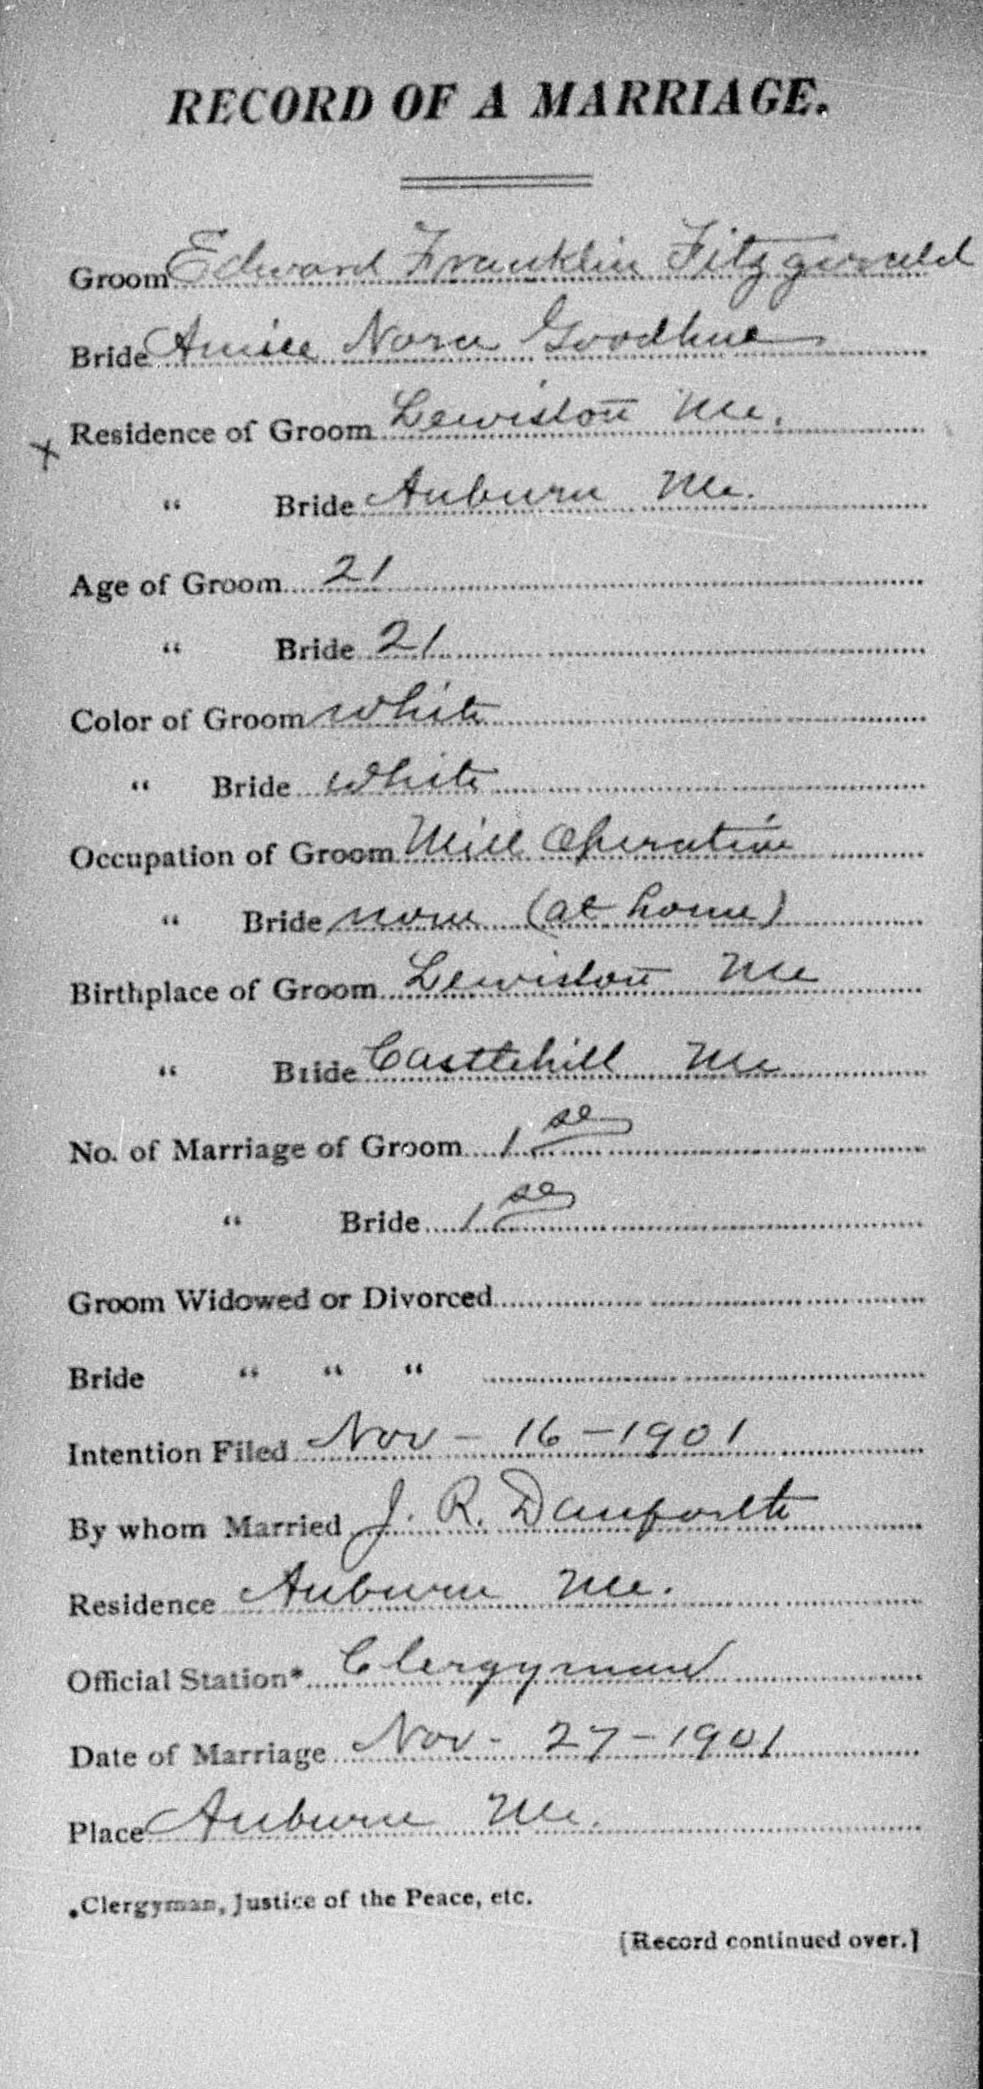 RECORD OF A MARRIAGE.
Groom Edward Franklin Fitzgerald
Bride Annie Nora Goodhue
x Residence of Groom Lewiston Me.
" Bride Auburn Me.
Age of Groom 21
" Bride 21
Color of Groom white
" Bride white
Occupation of Groom Mill Operative
" Bride none (at home)
Birthplace of Groom Lewiston Me
" Bride Castlehill Me
No. of Marriage of Groom 1st
" Bride 1st
Groom Widowed or Divorced
Bride " " "
Intention Filed Nov - 16 - 1901
By whom Married J. R. Danforth
Residence Auburn Me.
Official Station* Clergyman
Date of Marriage Nov - 27 - 1901
Place Auburn Me.
*Clergyman, Justice of the Peace, etc.
[Record continued over.]